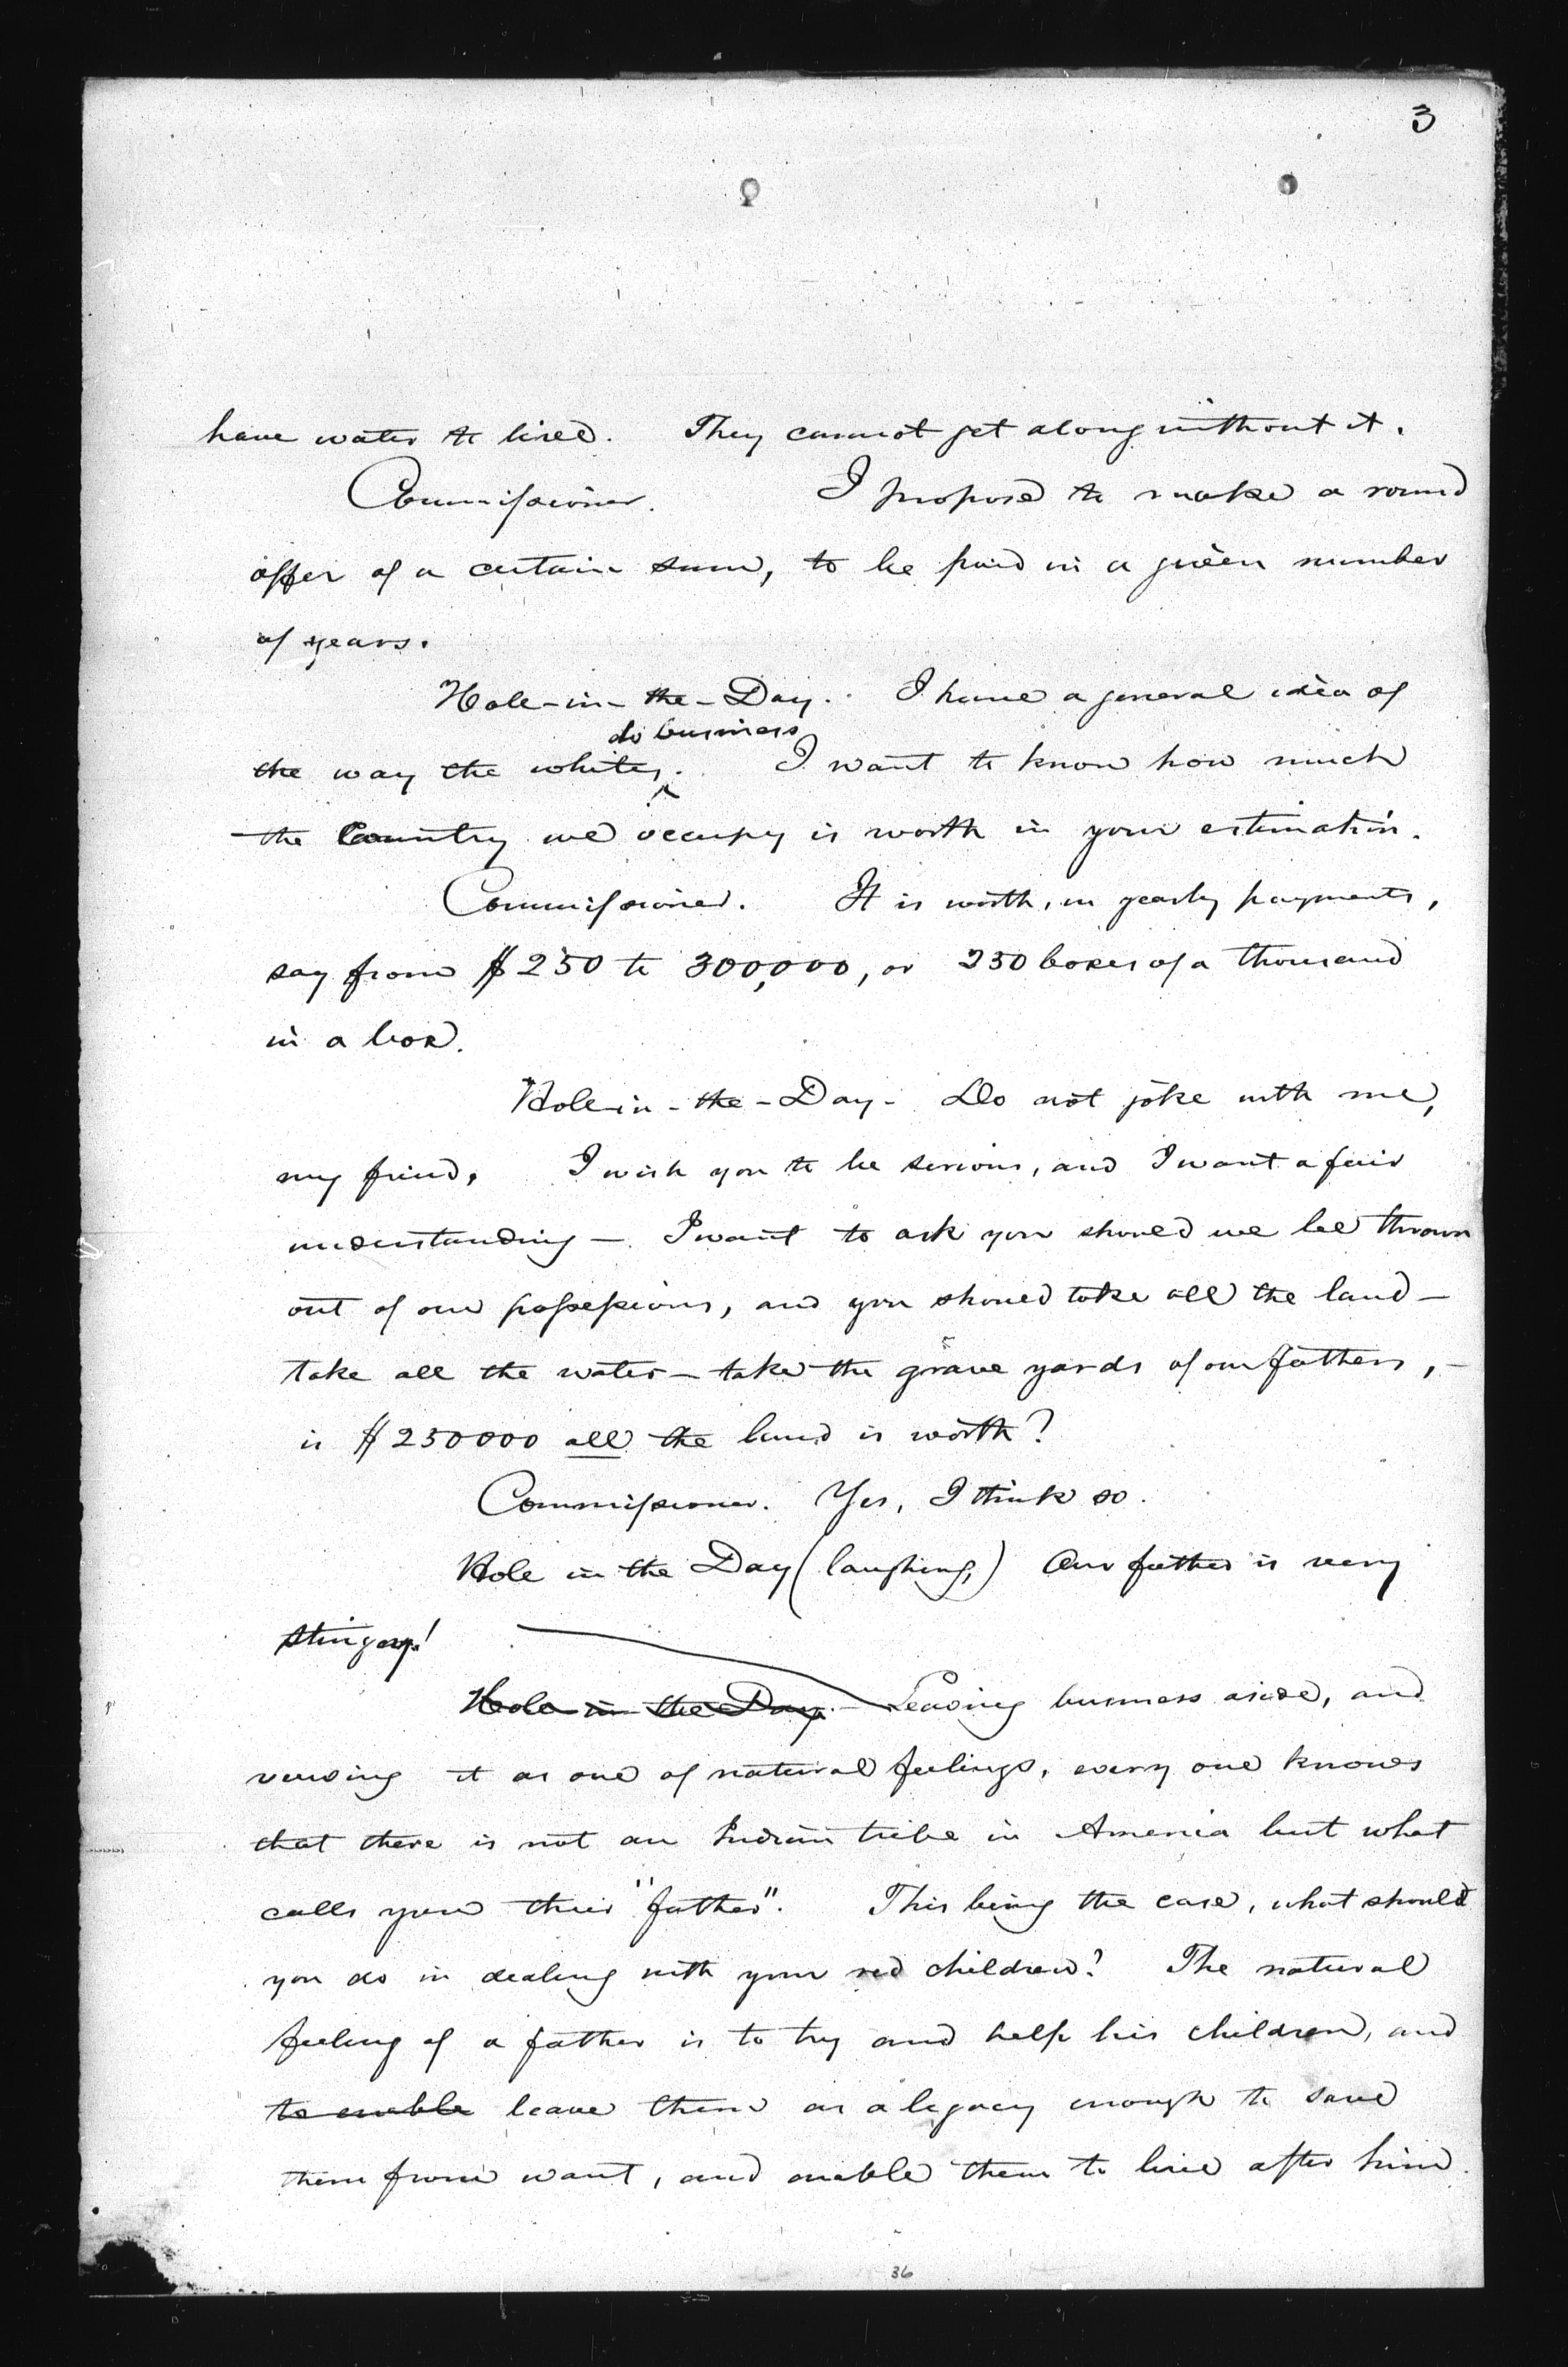 3
have water to live. They cannot get along without it.
Commissioner. I propose to make a round
offer of a certain sum, to be paid in a given number
of years.
Hole-in-the-Day. I have a general idea of
do business
the way the whites. I want to know how much
the Country we occupy is worth in your estimation.
Commissioner. It is worth, in yearly payments,
say from $250 to 300,000, or 250 boxes of a thousand
in a box.
Hole-in-the-Day - Do not joke with me,
my friend. I wish you to be serious, and I want a fair
understanding - I want to ask you should we be thrown
out of our possessions, and you should take all the land -
take all the water - take the grave yards of our fathers, -
is $250000 all the land is worth?
Commissioner. Yes, I think so.
Hole in the Day (laughing,) Our father is very
stingey!
Hole in the Day. - Leaving business aside, and
viewing it as one of natural feelings, every one knows
that there is not an Indian tribe in America but what
calls you their "father". This being the case, what should
you do in dealing with your red children? The natural
feeling of a father is to try and help his children, and
to enable leave them as a legacy enough to save
them from want, and enable them to live after him
36